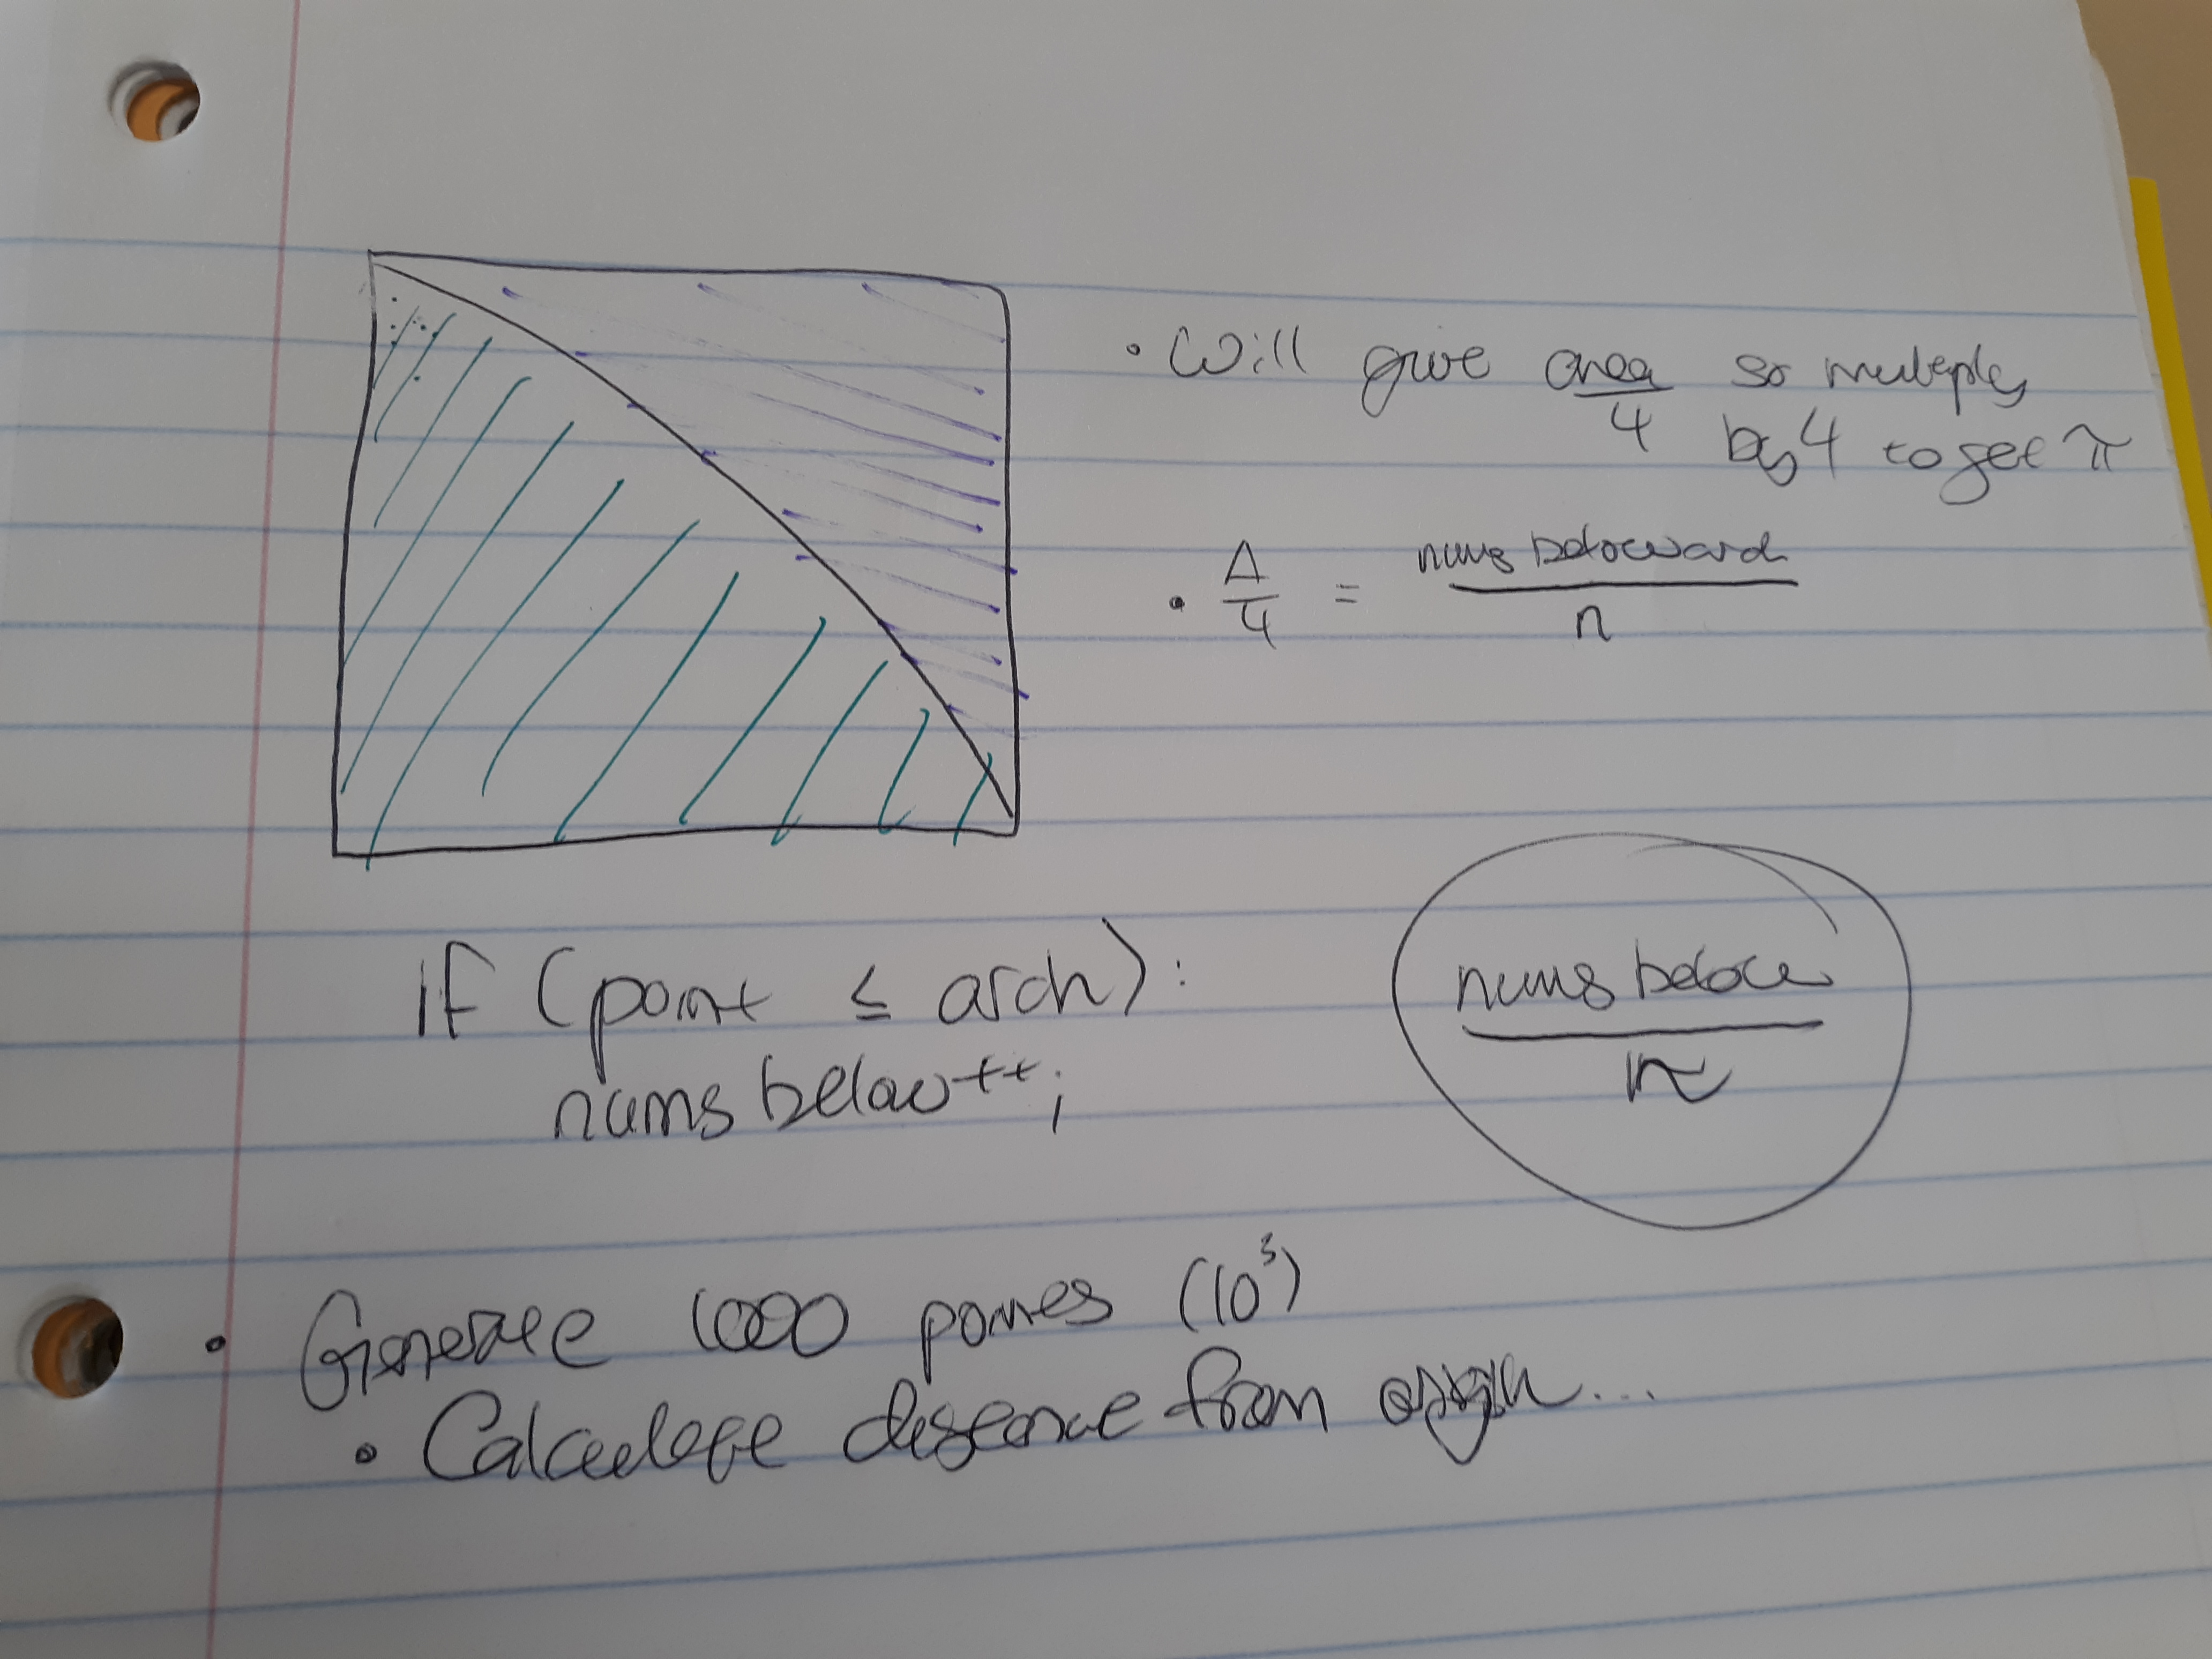 • Will give area so multiply
4 by 4 to get π
• A/4 = numsbelowarch
n
IF (point ≤ arch):
numsbelow++;
numsbelow
n
• Generate 1000 points (10³)
• Calculate distance from origin...